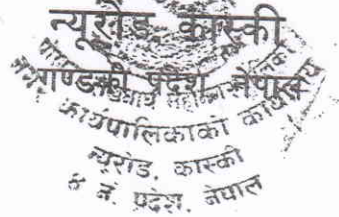 न्यूरोड, कास्की
गण्डकी प्रदेश, नेपाल
कार्यपालिकाको कार्यालय
न्यूरोड, कास्की
४ नं. प्रदेश, नेपाल